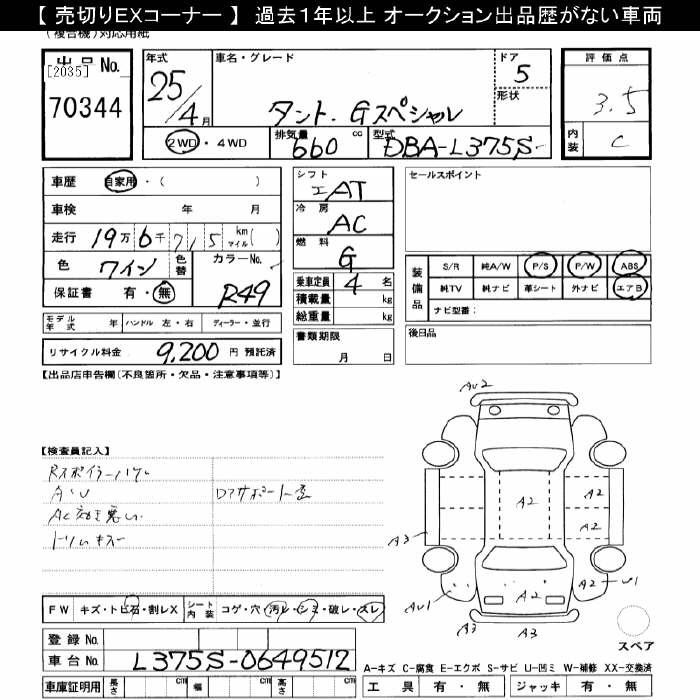 【 売切りEXコーナー 】 過去1年以上 オークション出品歴がない車両
(複合機)対応用紙
出品 No.
[2035]
70344
年式
25/4月
車名・グレード
タント. Gスペシャル
ドア
5
形状
2WD・4WD
排気量
660 cc
型式
DBA-L375S-
評価点
3.5
内装
C
車歴 自家用・( )
車検 年 月
走行 19万6千715 km マイル( )
色 ワイン 色替 カラーNo. R49
保証書 有・無
モデル年式 年 ハンドル 左・右 ディーラー・並行
リサイクル料金 9,200 円 預託済
シフト
AT
冷房
AC
燃料
G
乗車定員 4 名
積載量 kg
総重量 kg
書類期限
月 日
セールスポイント
装備品
S/R 純A/W P/S P/W ABS
純TV 純ナビ 革シート 外ナビ エアB
ナビ型番:
後日品
【出品店申告欄(不良箇所・欠品・注意事項等)】
【検査員記入】
Rスポイラーハゲ
A・U
AC効き悪い
トリムキズ
A-キズ C-腐食 E-エクボ S-サビ U-凹ミ W-補修 XX-交換済
AU2
A2
A2
A2
A3
A2
AU1
A3
A3
スペア
FW キズ・トビ石・割レX シート内装 コゲ・穴・汚レ・シミ・破レ・スレ
登録 No.
車台 No. L375S-0649512
車庫証明用 長さ cm 幅 cm 高さ cm
工具 有・無 ジャッキ 有・無